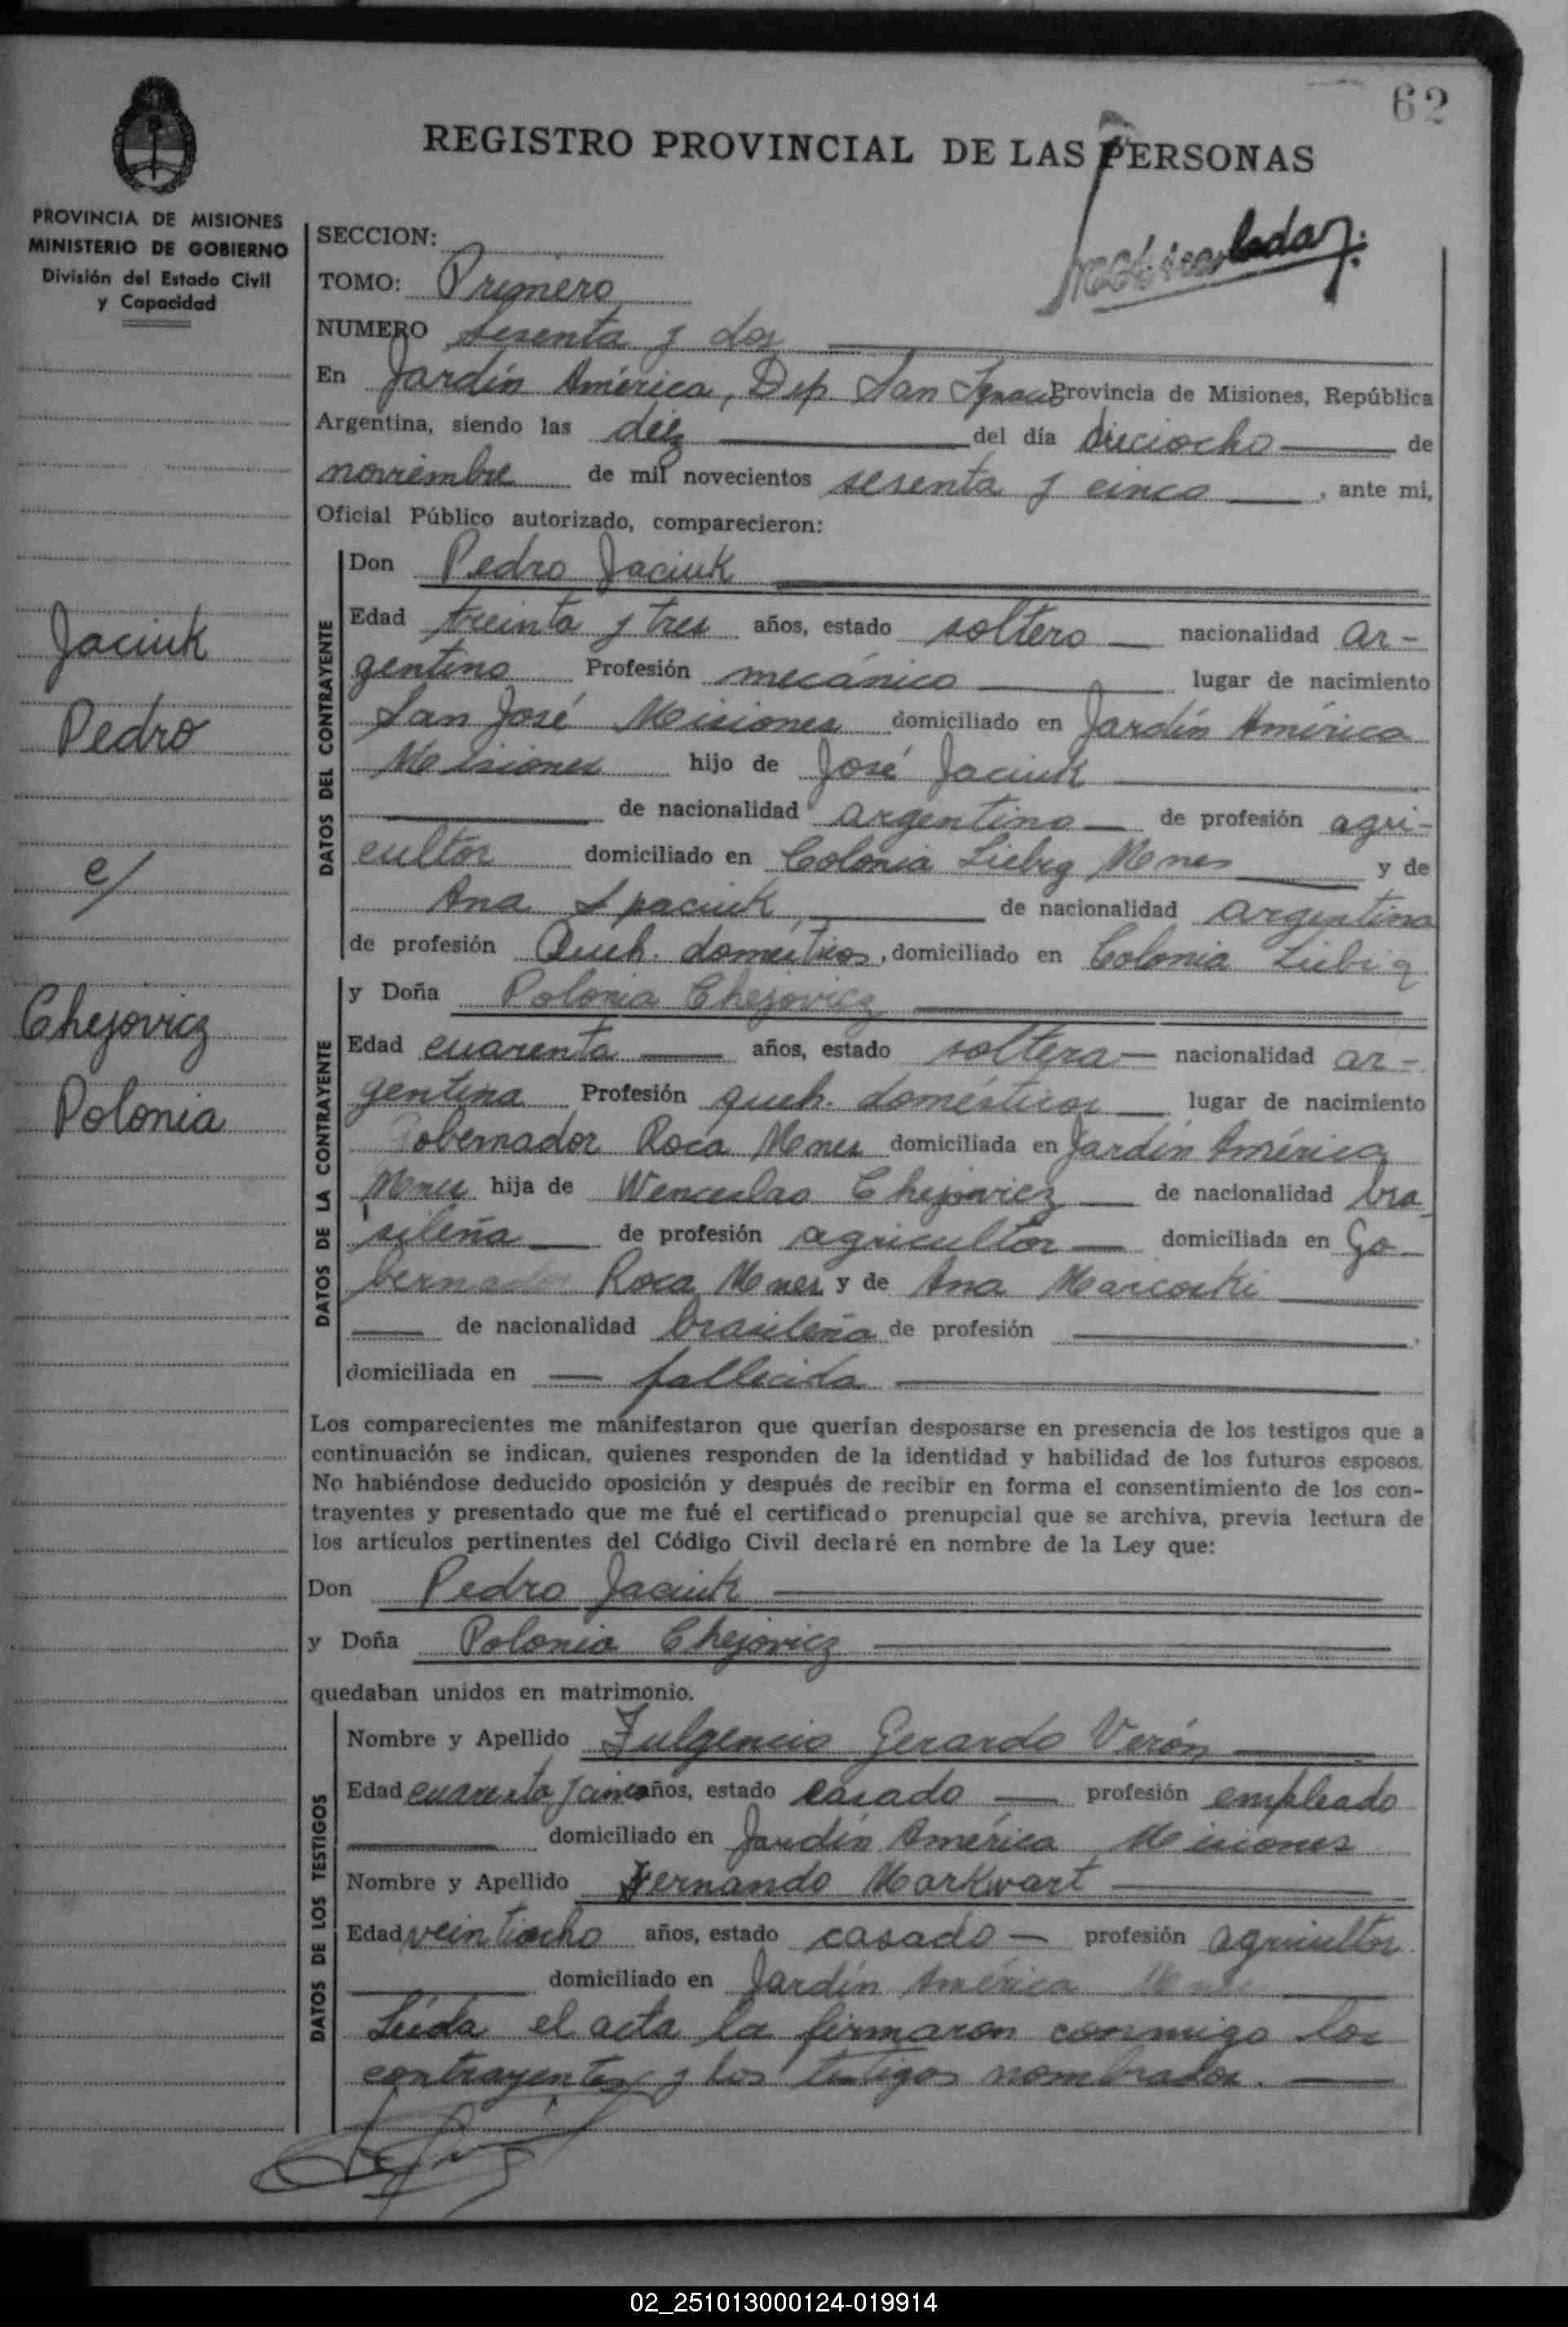 62
REGISTRO PROVINCIAL DE LAS PERSONAS
PROVINCIA DE MISIONES
MINISTERIO DE GOBIERNO
División del Estado Civil
y Capacidad
SECCION:
TOMO: Primero
NUMERO sesenta y dos
En Jardín América, Dep. San Ignacio Provincia de Misiones, República
Argentina, siendo las diéz del día dieciocho de
noviembre de mil novecientos sesenta y cinco, ante mi,
Oficial Público autorizado, comparecieron:
Jaciuk
Pedro
c/
Chejovicz
Polonia
DATOS DEL CONTRAYENTE
Don Pedro Jaciuk
Edad treinta y tres años, estado soltero nacionalidad ar-
gentino Profesión mecánico lugar de nacimiento
San José Misiones domiciliado en Jardín América
Misiones hijo de José Jaciuk
de nacionalidad argentino de profesión agri-
cultor domiciliado en Colonia Liebig Mnes y de
Ana Spaciuk de nacionalidad argentina
de profesión Queh. domésticos, domiciliado en Colonia Liebig
DATOS DE LA CONTRAYENTE
y Doña Polonia Chejovicz
Edad cuarenta años, estado soltera nacionalidad ar-
gentina Profesión queh. domésticos lugar de nacimiento
Gobernador Roca Mones domiciliada en Jardín América
Mnes hija de Wenceslao Chejovicz de nacionalidad bra
sileña de profesión agricultor domiciliada en Go
bernador Roca Mones y de Ana Marcoski
de nacionalidad brasileña de profesión
domiciliada en fallecida
Los comparecientes me manifestaron que querían desposarse en presencia de los testigos que a
continuación se indican, quienes responden de la identidad y habilidad de los futuros esposos.
No habiéndose deducido oposición y después de recibir en forma el consentimiento de los con-
trayentes y presentado que me fué el certificado prenupcial que se archiva, previa lectura de
los artículos pertinentes del Código Civil declaré en nombre de la Ley que:
Don Pedro Jaciuk
y Doña Polonia Chejovicz
quedaban unidos en matrimonio.
DATOS DE LOS TESTIGOS
Nombre y Apellido Fulgencio Gerardo Verón
Edad cuarenta y cinco años, estado casado profesión empleado
domiciliado en Jardín América Misiones
Nombre y Apellido Fernando Markwart
Edad veintiocho años, estado casado profesión agricultor
domiciliado en Jardín América
Leída el acta la firmaron conmigo los
contrayentes y los testigos nombrados.
02_251013000124-019914